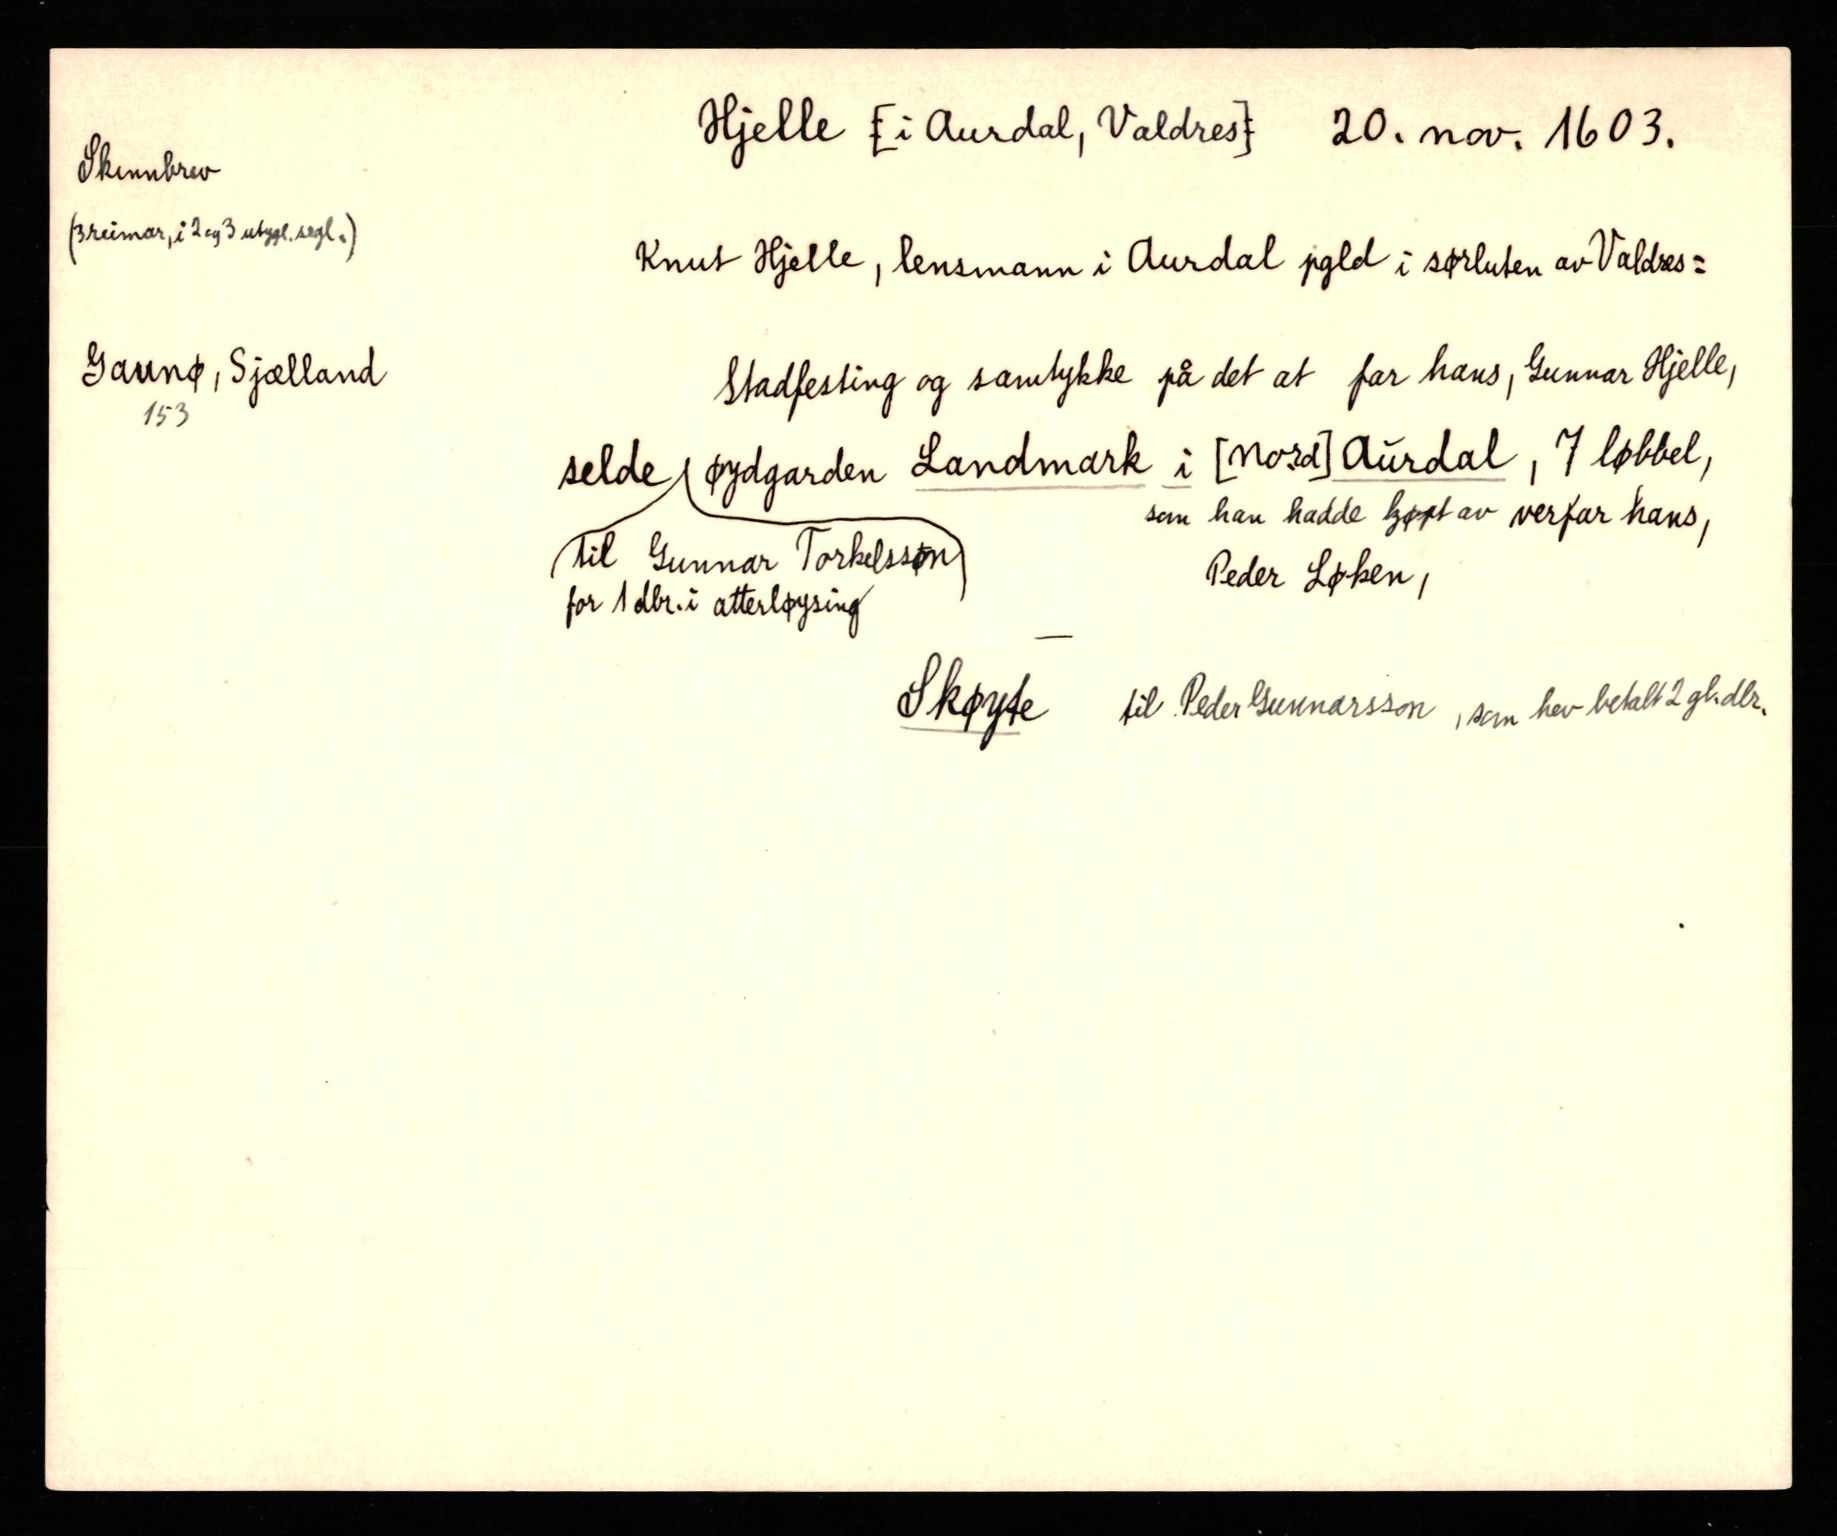 Hjelle [i Aurdal, Valdres] 20. nov. 1603.
Skinnbrev
(3 reimar, i 2 og 3 utygl. segl.)
Knut Hjelle, lensmann i Aurdal pgld i sørluten av Valdres:
Gaunø, Sjælland
153
Stadfesting og samtykke på det at far hans, Gunnar Hjelle,
selde øydgarden Landmark i [Nord] Aurdal, 7 løbbel,
som han hadde kjøpt av verfar hans,
til Gunnar Torkelsson
Peder Løken,
for 1 dlr. i atterløysing
—
Skøyte til Peder Gunnarsson, som hev betalt 2 gl. dlr.